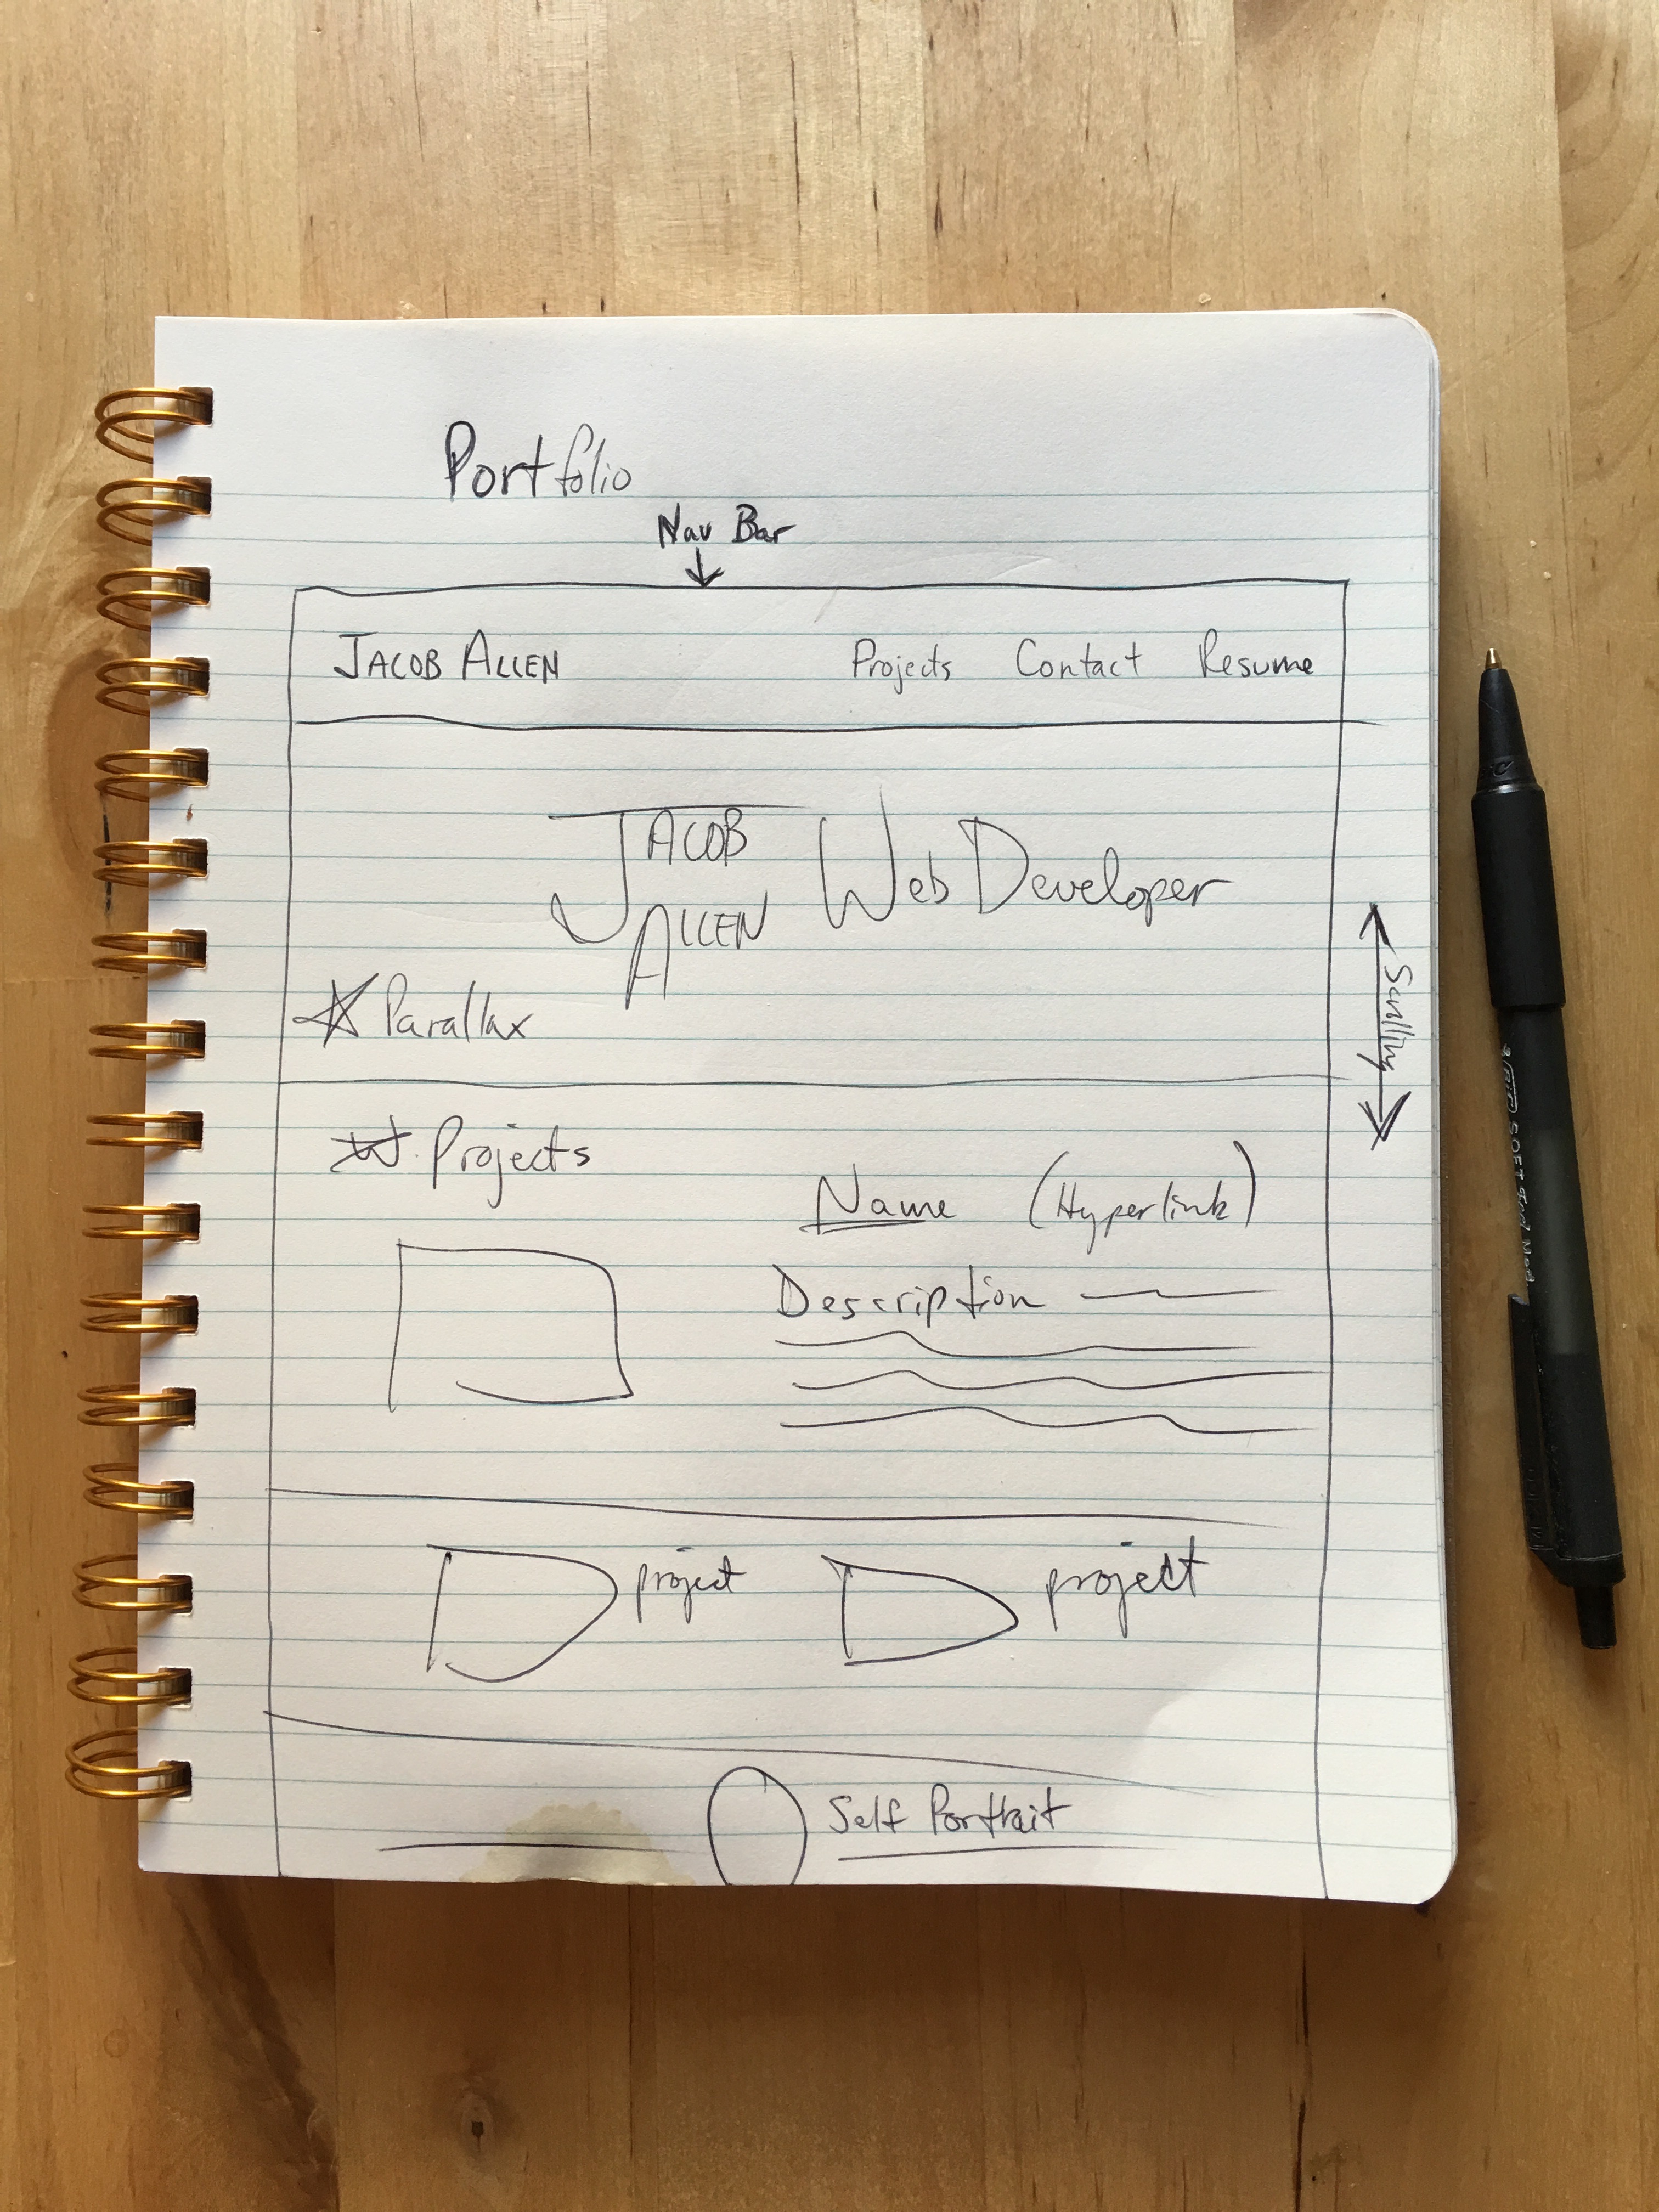 Portfolio
Nav Bar
JACOB ALLEN Projects Contact Resume
JACOB ALLEN Web Developer
Parallax
Scrolling
Projects
Name (Hyperlink)
Description
project project
Self Portrait
BIC SOFT Feel Med